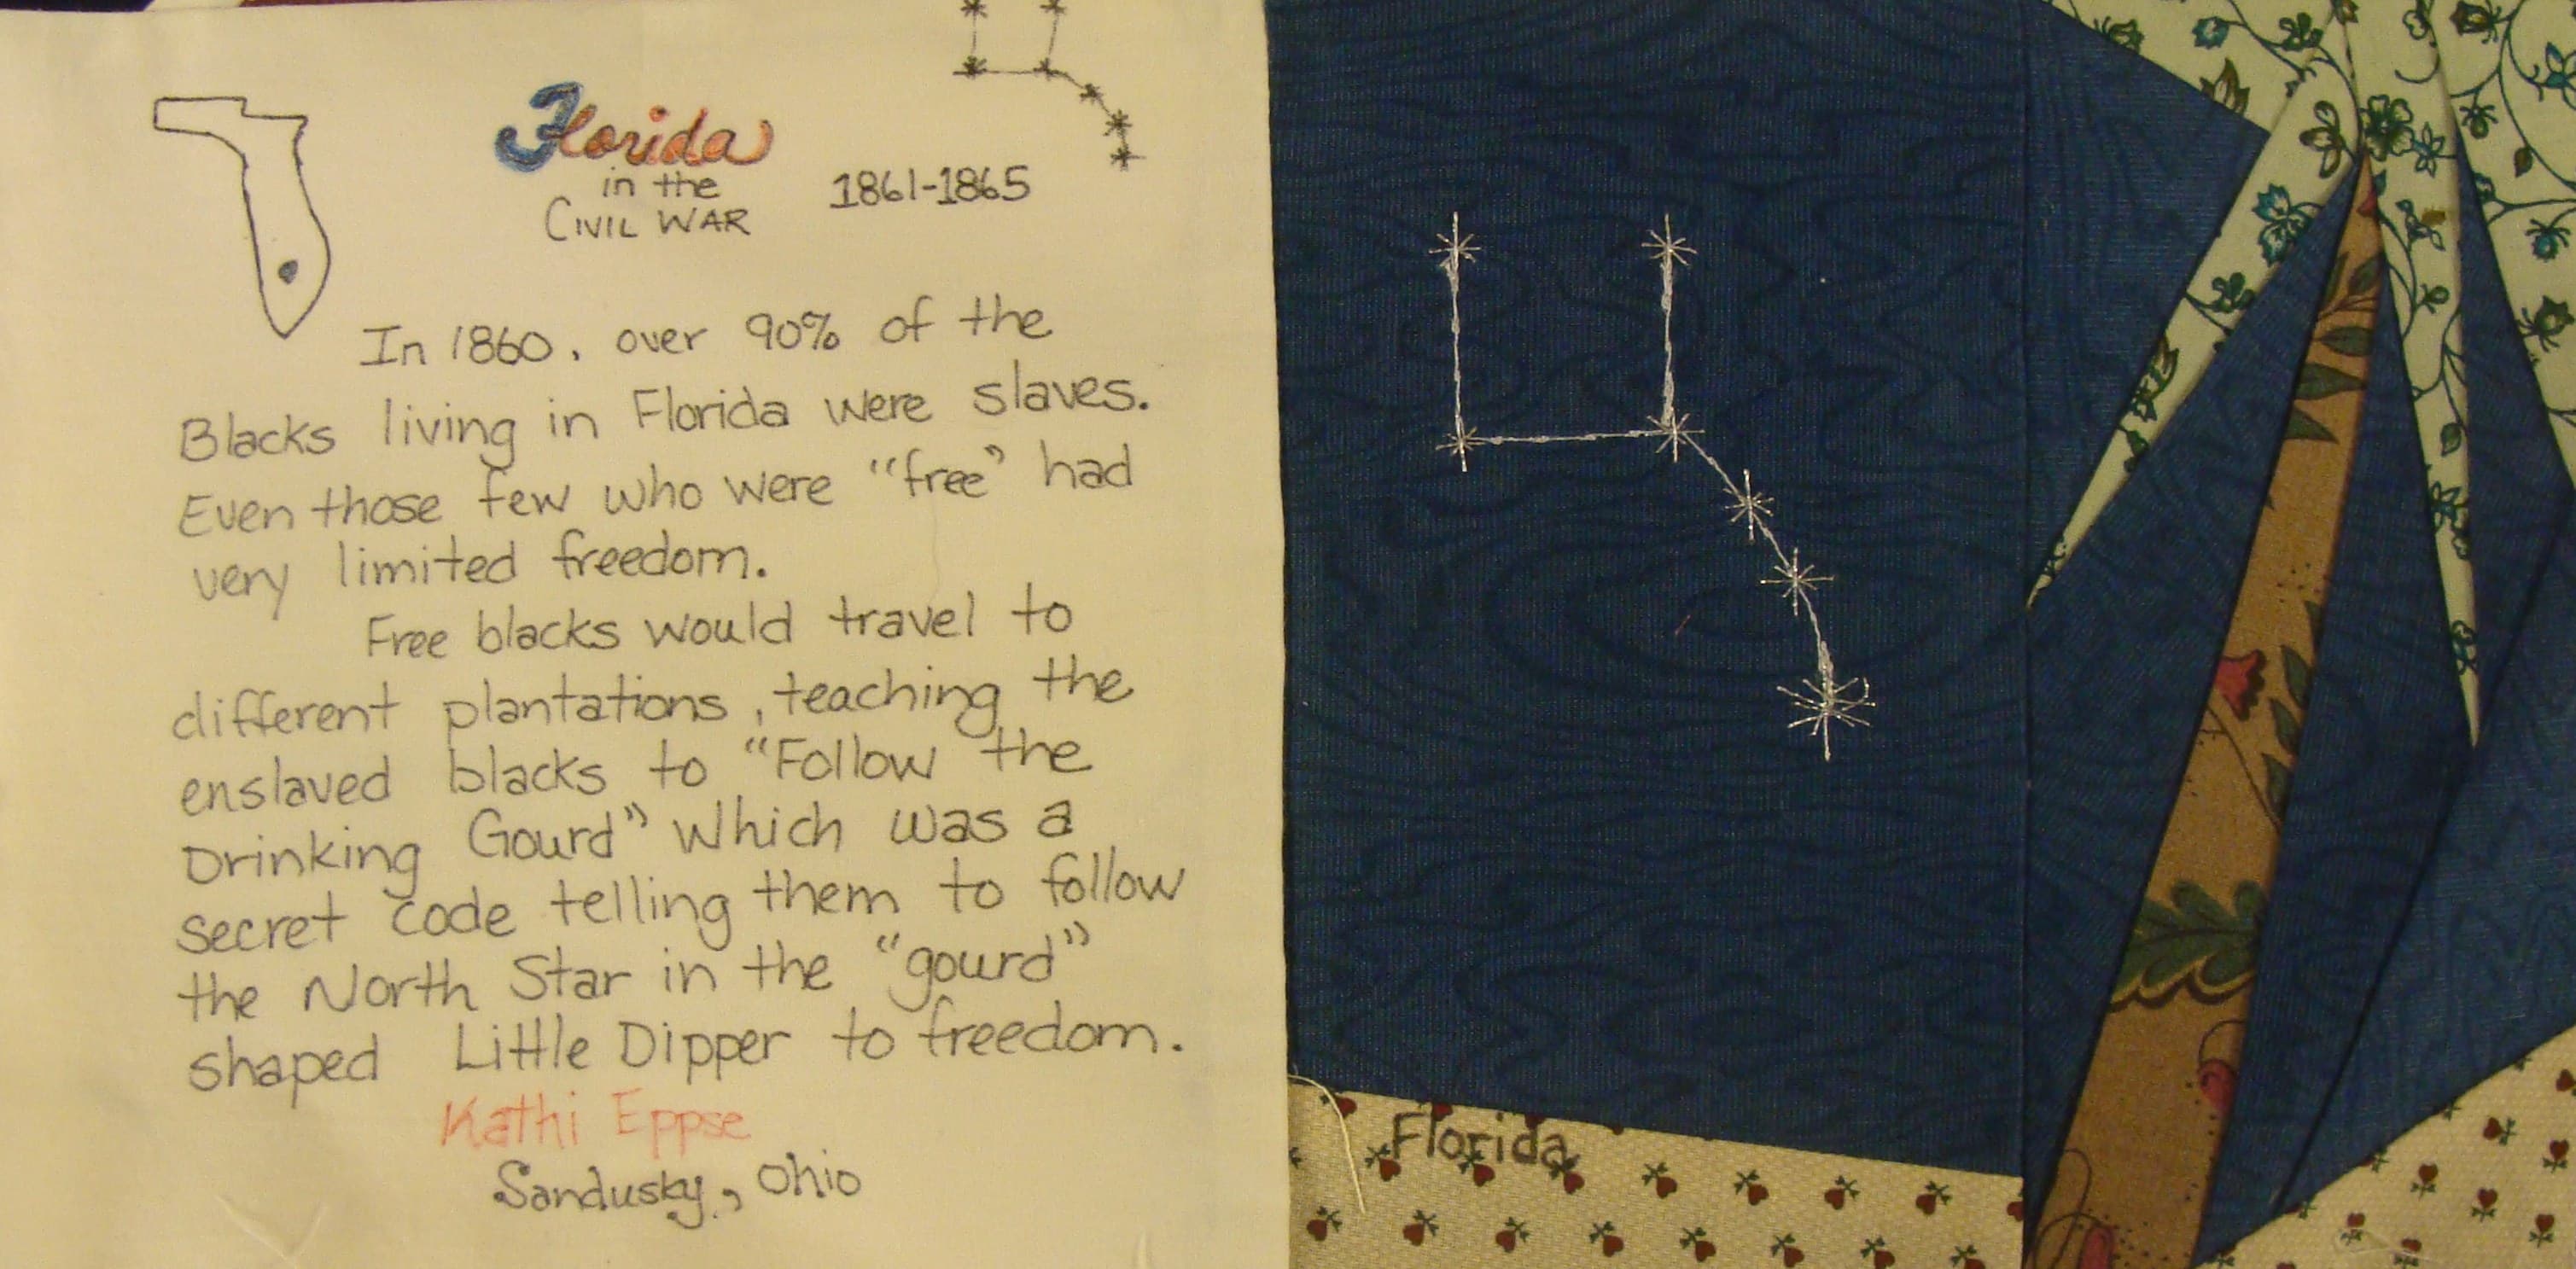 Florida
in the
CIVIL WAR
1861-1865
In 1860, over 90% of the
Blacks living in Florida were slaves.
Even those few who were "free" had
very limited freedom.
Free blacks would travel to
different plantations, teaching the
enslaved blacks to "Follow the
Drinking Gourd" which was a
secret code telling them to follow
the North Star in the "gourd"
shaped Little Dipper to freedom.
Kathi Eppse
Sandusky, Ohio
Florida